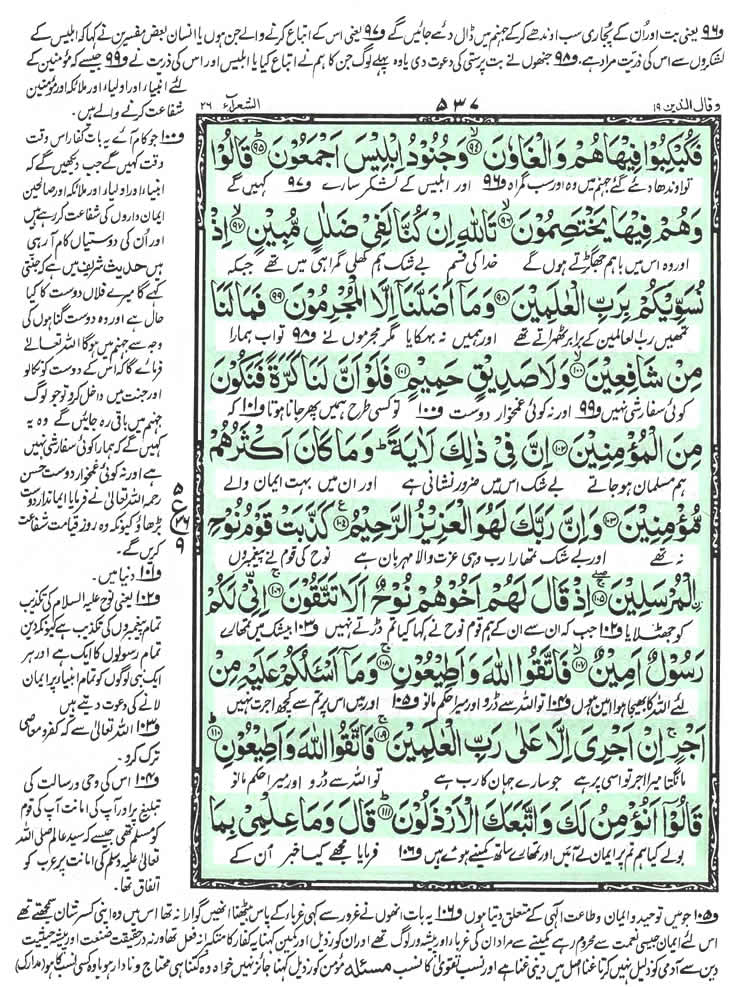 و۹۶ یعنی بت اور اُن کے پُجاری سب اوندھے کرکے جہنم میں ڈال دئے جائیں گے و۹۷ یعنی اس کے اتباع کرنے والے جن ہوں یا انسان بعض مفسرین نے کہا کہ ابلیس کے
لشکروں سے اس کی ذریّت مراد ہے۔ و۹۸ جنھوں نے بت پرستی کی دعوت دی یا وہ پہلے لوگ جن کا ہم نے اتباع کیا یا ابلیس اور اس کی ذریت نے و۹۹ جیسے کہ مؤمنین کے
لئے انبیاء اور اولیاء اور ملائکہ اور مؤمنین
شفاعت کرنے والے ہیں۔
و۱۰۰ جو کام آئے یہ بات کفار اس وقت
وقت کہیں گے جب دیکھیں گے کہ
انبیاء اور اولیاء اور ملائکہ اور صالحین
ایمان داروں کی شفاعت کررہے ہیں
اور اُن کی دوستیاں کام آرہی
ہیں حدیث شریف میں ہے کہ جنتی
کہے گا میرے فلاں دوست کا کیا
حال ہے اور وہ دوست گناہوں کی
وجہ سے جہنم میں ہوگا اللہ تعالےٰ
فرمائے گا کہ اس کے دوست کو نکالو
اور جنت میں داخل کرو تو جو لوگ
جہنم میں باقی رہ جائیں گے وہ یہ
کہیں گے کہ ہمارا کوئی سفارشی نہیں
ہے اور نہ کوئی غمخوار دوست حسن
رحمہ اللہ تعالیٰ نے فرمایا ایماندار دوست
بڑھاؤ کیونکہ وہ روز قیامت شفاعت
کریں گے۔
و۱۰۱ دنیا میں۔
و۱۰۲ یعنی نوح علیہ السلام کی تکذیب
تمام پیغمبروں کی تکذیب ہے کیونکہ دین
تمام رسولوں کا ایک ہے اور ہر
ایک نبی لوگوں کو تمام انبیاء پر ایمان
لانے کی دعوت دیتے ہیں
و۱۰۳ اللہ تعالیٰ سے کہ کفر و معاصی
ترک کرو۔
و۱۰۴ اس کی وحی و رسالت کی
تبلیغ پر اور آپ کی امانت آپ کی قوم
کو مسلم تھی جیسے کہ سید عالم صلی اللہ
تعالیٰ علیہ وسلم کی امانت پر عرب کو
اتفاق تھا۔
وقال الذین ۱۹
۵۳۷
الشعرآء ۲۶
فَكُبْكِبُوْا فِيْهَا هُمْ وَالْغَاوٗنَ ۙ۹۴ وَجُنُوْدُ اِبْلِيْسَ اَجْمَعُوْنَ ؕ۹۵ قَالُوْا
تو اوندھا دئے گئے جہنم میں وہ اور سب گمراہ و۹۶ اور ابلیس کے لشکر سارے و۹۷ کہیں گے
وَهُمْ فِيْهَا يَخْتَصِمُوْنَ ۙ۹۶ تَاللّٰهِ اِنْ كُنَّا لَفِيْ ضَلٰلٍ مُّبِيْنٍ ۙ۹۷ اِذْ
اور وہ اس میں باہم جھگڑتے ہوں گے خدا کی قسم بے شک ہم کھلی گمراہی میں تھے جبکہ
نُسَوِّيْكُمْ بِرَبِّ الْعٰلَمِيْنَ ۹۸ وَمَاۤ اَضَلَّنَاۤ اِلَّا الْمُجْرِمُوْنَ ۹۹ فَمَا لَنَا
تمھیں رب العالمین کے برابر ٹھہراتے تھے اور ہمیں نہ بہکایا مگر مجرموں نے و۹۸ تو اب ہمارا
مِنْ شَافِعِيْنَ ۙ۱۰۰ وَلَا صَدِيْقٍ حَمِيْمٍ ۱۰۱ فَلَوْ اَنَّ لَنَا كَرَّةً فَنَكُوْنَ
کوئی سفارشی نہیں و۹۹ اور نہ کوئی غمخوار دوست و۱۰۰ تو کسی طرح ہمیں پھر جانا ہوتا و۱۰۱ کہ
مِنَ الْمُؤْمِنِيْنَ ۱۰۲ اِنَّ فِيْ ذٰلِكَ لَاٰيَةً ؕ وَمَا كَانَ اَكْثَرُهُمْ
ہم مسلمان ہو جاتے بے شک اس میں ضرور نشانی ہے اور ان میں بہت ایمان والے
مُّؤْمِنِيْنَ ۱۰۳ وَاِنَّ رَبَّكَ لَهُوَ الْعَزِيْزُ الرَّحِيْمُ ۱۰۴ كَذَّبَتْ قَوْمُ نُوْحِ
نہ تھے اور بے شک تمھارا رب وہی عزت والا مہربان ہے نوح کی قوم نے پیغمبروں
ࣙالْمُرْسَلِيْنَ ۱۰۵ اِذْ قَالَ لَهُمْ اَخُوْهُمْ نُوْحٌ اَلَا تَتَّقُوْنَ ۱۰۶ اِنِّيْ لَكُمْ
کو جھٹلایا و۱۰۲ جب کہ ان سے ان کے ہم قوم نوح نے کہا کیا تم ڈرتے نہیں و۱۰۳ بیشک میں تمھارے
رَسُوْلٌ اَمِيْنٌ ۙ۱۰۷ فَاتَّقُوا اللّٰهَ وَاَطِيْعُوْنِ ۱۰۸ وَمَاۤ اَسْئَلُكُمْ عَلَيْهِ مِنْ
لئے اللہ کا بھیجا ہوا امین ہوں و۱۰۴ تو اللہ سے ڈرو اور میرا حکم مانو و۱۰۵ اور میں اس پر تم سے کچھ اجرت نہیں
اَجْرٍ اِنْ اَجْرِيَ اِلَّا عَلٰى رَبِّ الْعٰلَمِيْنَ ۱۰۹ فَاتَّقُوا اللّٰهَ وَاَطِيْعُوْنِ ؕ۱۱۰
مانگتا میرا اجر تو اسی پر ہے جو سارے جہان کا رب ہے تو اللہ سے ڈرو اور میرا حکم مانو
قَالُوْۤا اَنُؤْمِنُ لَكَ وَاتَّبَعَكَ الْاَرْذَلُوْنَ ؕ۱۱۱ قَالَ وَمَا عِلْمِيْ بِمَا
بولے کیا ہم تم پر ایمان لے آئیں اور تمھارے ساتھ کمینے ہوئے ہیں و۱۰۶ فرمایا مجھے کیا خبر اُن کے
۵
ع
۲۶
۹
و۱۰۵ جو میں توحید و ایمان و طاعت الٰہی کے متعلق دیتا ہوں و۱۰۶ یہ بات انھوں نے غرور سے کہی غرباء کے پاس بیٹھنا انھیں گوارا نہ تھا اس میں وہ اپنی کسر شان سمجھتے تھے
اس لئے ایمان جیسی نعمت سے محروم رہے کمینے سے مراد ان کی غرباء اور پیشہ ور لوگ تھے اور ان کو رذیل اور کمین کہنا یہ کفار کا متکبرانہ فعل تھا ورنہ درحقیقت صنعت اور پیشہ حیثیت
دین سے آدمی کو ذلیل نہیں کرتا غنا اصل میں دینی غنا ہے اور نسب تقویٰ کا نسب مسئلہ مؤمن کو رذیل کہنا جائز نہیں خواہ وہ کتنا ہی محتاج و نادار ہو یا وہ کسی نسب کا ہو (مدارک)